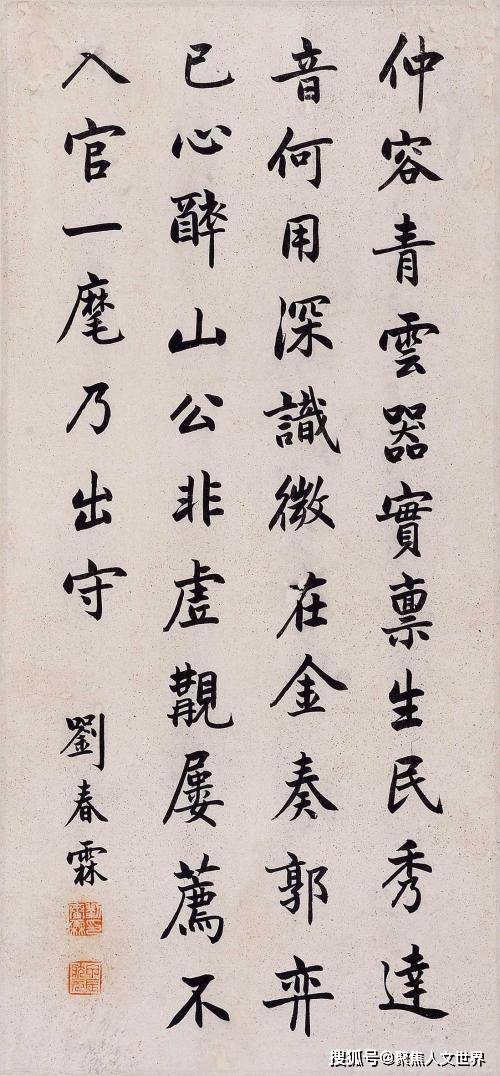 仲容青雲器實禀生民秀達
音何用深識微在金奏郭弈
已心醉山公非虛覯屢薦不
入官一麾乃出守
劉春霖
搜狐号@聚焦人文世界